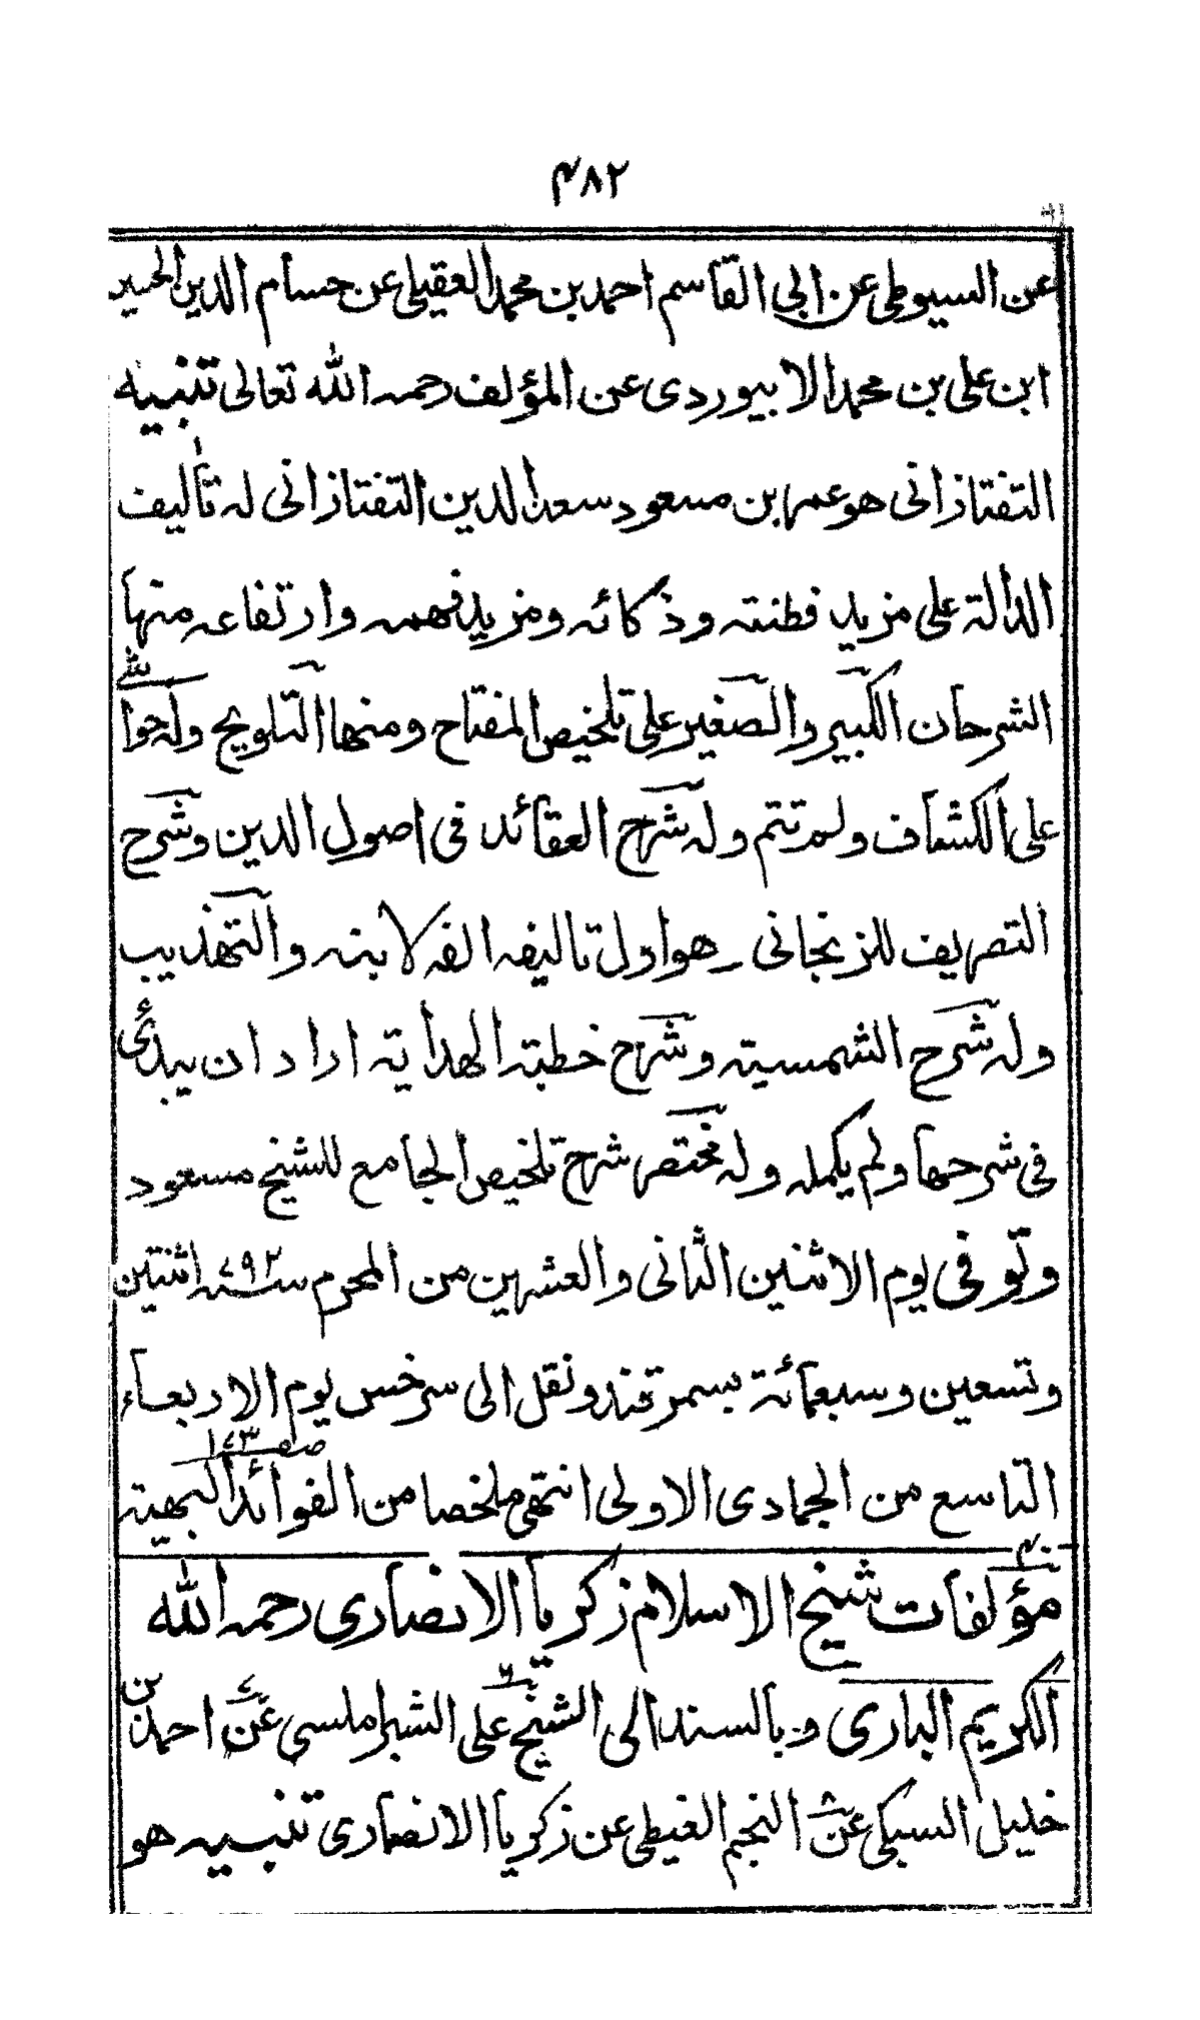 ٤٨٢
عن السيوطى عن ابى القاسم احمد بن محمد العقيلى عن حسام الدين
ابن على بن محمد الابيوردى عن المؤلف رحمه الله تعالى تنبيه
التفتازانى هو عمر بن مسعود سعد الدين التفتازانى له تأليف
الدالة على مزيد فطنته وذكائه ومزيد فهمه وارتفاعه منها
الشرحان الكبير والصغير على تلخيص المفتاح ومنها التلويح وله حوا
شى
على الكشاف ولم تتم وله شرح العقائد فى اصول الدين وشرح
التصريف للزنجانى وهو اول تاليفه الفه لابنه والتهذيب
وله شرح الشمسية وشرح خطبة الهداية اراد ان يبدئ
فى شرحها ولم يكمله وله مختصر شرح تلخيص الجامع للشيخ مسعود
وتوفى يوم الاثنين الثانى والعشرين من المحرم سنه ٧٩٢ اثنتين
وتسعين وسبعمائة بسمرقند ونقل الى سرخس يوم الاربعاء
التاسع من الجمادى الاولى انتهى ملخصا من الفوائد البهية
صفه ١٧٣
مؤلفات شيخ الاسلام زكريا الانصارى رحمه الله
الكريم البارى وبالسند الى الشيخ على الشبراملسى عن احمد بن
خليل السبكى عن النجم الغيطى عن زكريا الانصارى تنبيه هو